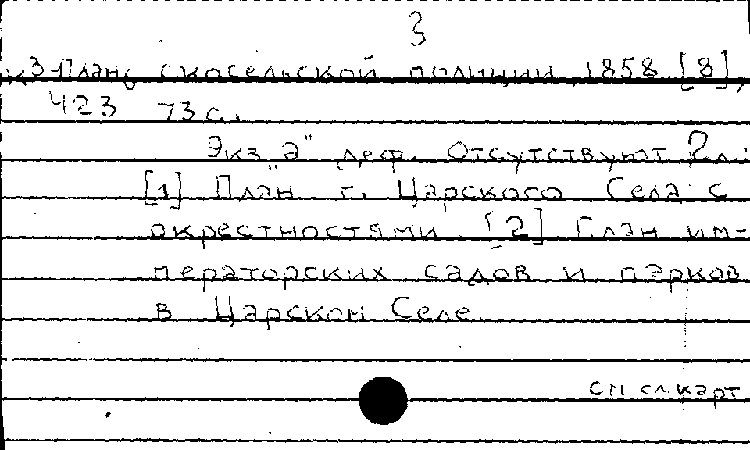 3
План, скосельской полиции, 1858. [8],
423 73 с.
Экз. "а" деф. Отсутствуют 2 л:
[1] План г. Царского Села с
окрестностями. [2] План им-
ператорских садов и парков
в Царском Селе.
см сл. карт